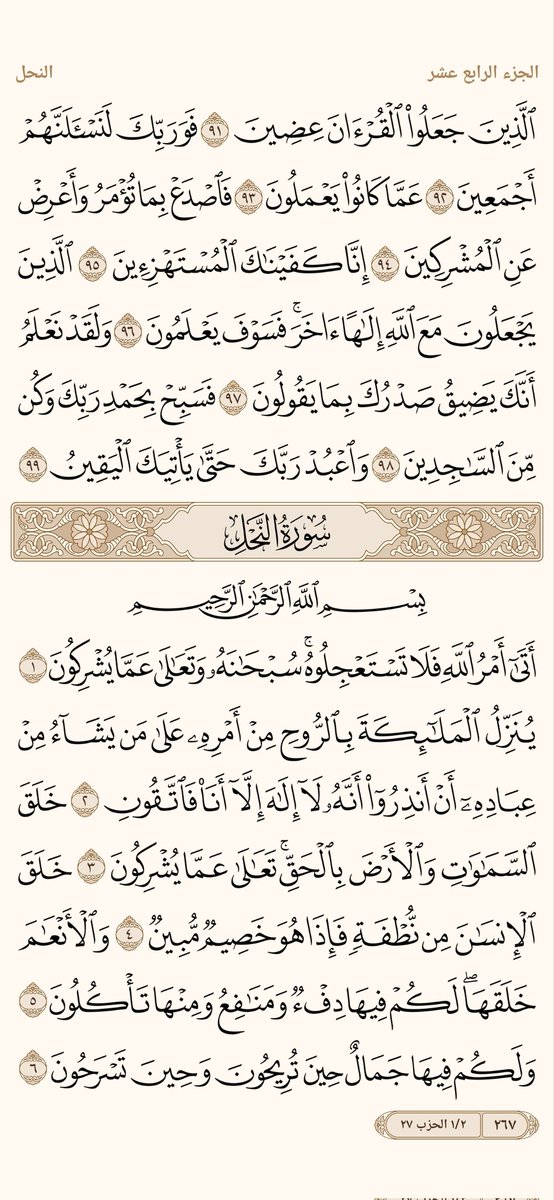 الجزء الرابع عشر
النحل
ٱلَّذِينَ جَعَلُوا۟ ٱلْقُرْءَانَ عِضِينَ ٩١ فَوَرَبِّكَ لَنَسْـَٔلَنَّهُمْ
أَجْمَعِينَ ٩٢ عَمَّا كَانُوا۟ يَعْمَلُونَ ٩٣ فَٱصْدَعْ بِمَا تُؤْمَرُ وَأَعْرِضْ
عَنِ ٱلْمُشْرِكِينَ ٩٤ إِنَّا كَفَيْنَٰكَ ٱلْمُسْتَهْزِءِينَ ٩٥ ٱلَّذِينَ
يَجْعَلُونَ مَعَ ٱللَّهِ إِلَٰهًا ءَاخَرَ ۚ فَسَوْفَ يَعْلَمُونَ ٩٦ وَلَقَدْ نَعْلَمُ
أَنَّكَ يَضِيقُ صَدْرُكَ بِمَا يَقُولُونَ ٩٧ فَسَبِّحْ بِحَمْدِ رَبِّكَ وَكُن
مِّنَ ٱلسَّٰجِدِينَ ٩٨ وَٱعْبُدْ رَبَّكَ حَتَّىٰ يَأْتِيَكَ ٱلْيَقِينُ ٩٩
سُورَةُ النَّحْلِ
بِسْمِ ٱللَّهِ ٱلرَّحْمَٰنِ ٱلرَّحِيمِ
أَتَىٰٓ أَمْرُ ٱللَّهِ فَلَا تَسْتَعْجِلُوهُ ۚ سُبْحَٰنَهُۥ وَتَعَٰلَىٰ عَمَّا يُشْرِكُونَ ١
يُنَزِّلُ ٱلْمَلَٰٓئِكَةَ بِٱلرُّوحِ مِنْ أَمْرِهِۦ عَلَىٰ مَن يَشَآءُ مِنْ
عِبَادِهِۦٓ أَنْ أَنذِرُوٓا۟ أَنَّهُۥ لَآ إِلَٰهَ إِلَّآ أَنَا۠ فَٱتَّقُونِ ٢ خَلَقَ
ٱلسَّمَٰوَٰتِ وَٱلْأَرْضَ بِٱلْحَقِّ ۚ تَعَٰلَىٰ عَمَّا يُشْرِكُونَ ٣ خَلَقَ
ٱلْإِنسَٰنَ مِن نُّطْفَةٍ فَإِذَا هُوَ خَصِيمٌ مُّبِينٌ ٤ وَٱلْأَنْعَٰمَ
خَلَقَهَا ۗ لَكُمْ فِيهَا دِفْءٌ وَمَنَٰفِعُ وَمِنْهَا تَأْكُلُونَ ٥
وَلَكُمْ فِيهَا جَمَالٌ حِينَ تُرِيحُونَ وَحِينَ تَسْرَحُونَ ٦
٢٦٧ ١/٢ الحزب ٢٧